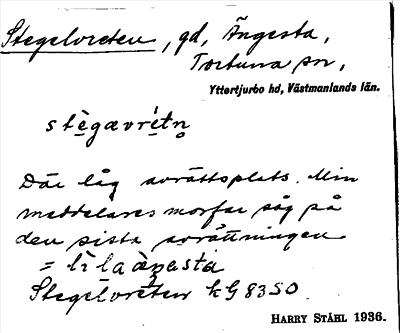 Stegelvreten, gd, Ängesta,
Tortuna sn,
Yttertjurbo hd, Västmanlands län.
stègavrétṇ
Där låg avrättsplats. Min
meddelares morfar såg på
den sista avrättningen
= lìlaèŋesta
Stegelvreten kG 8350
HARRY STÅHL 1936.